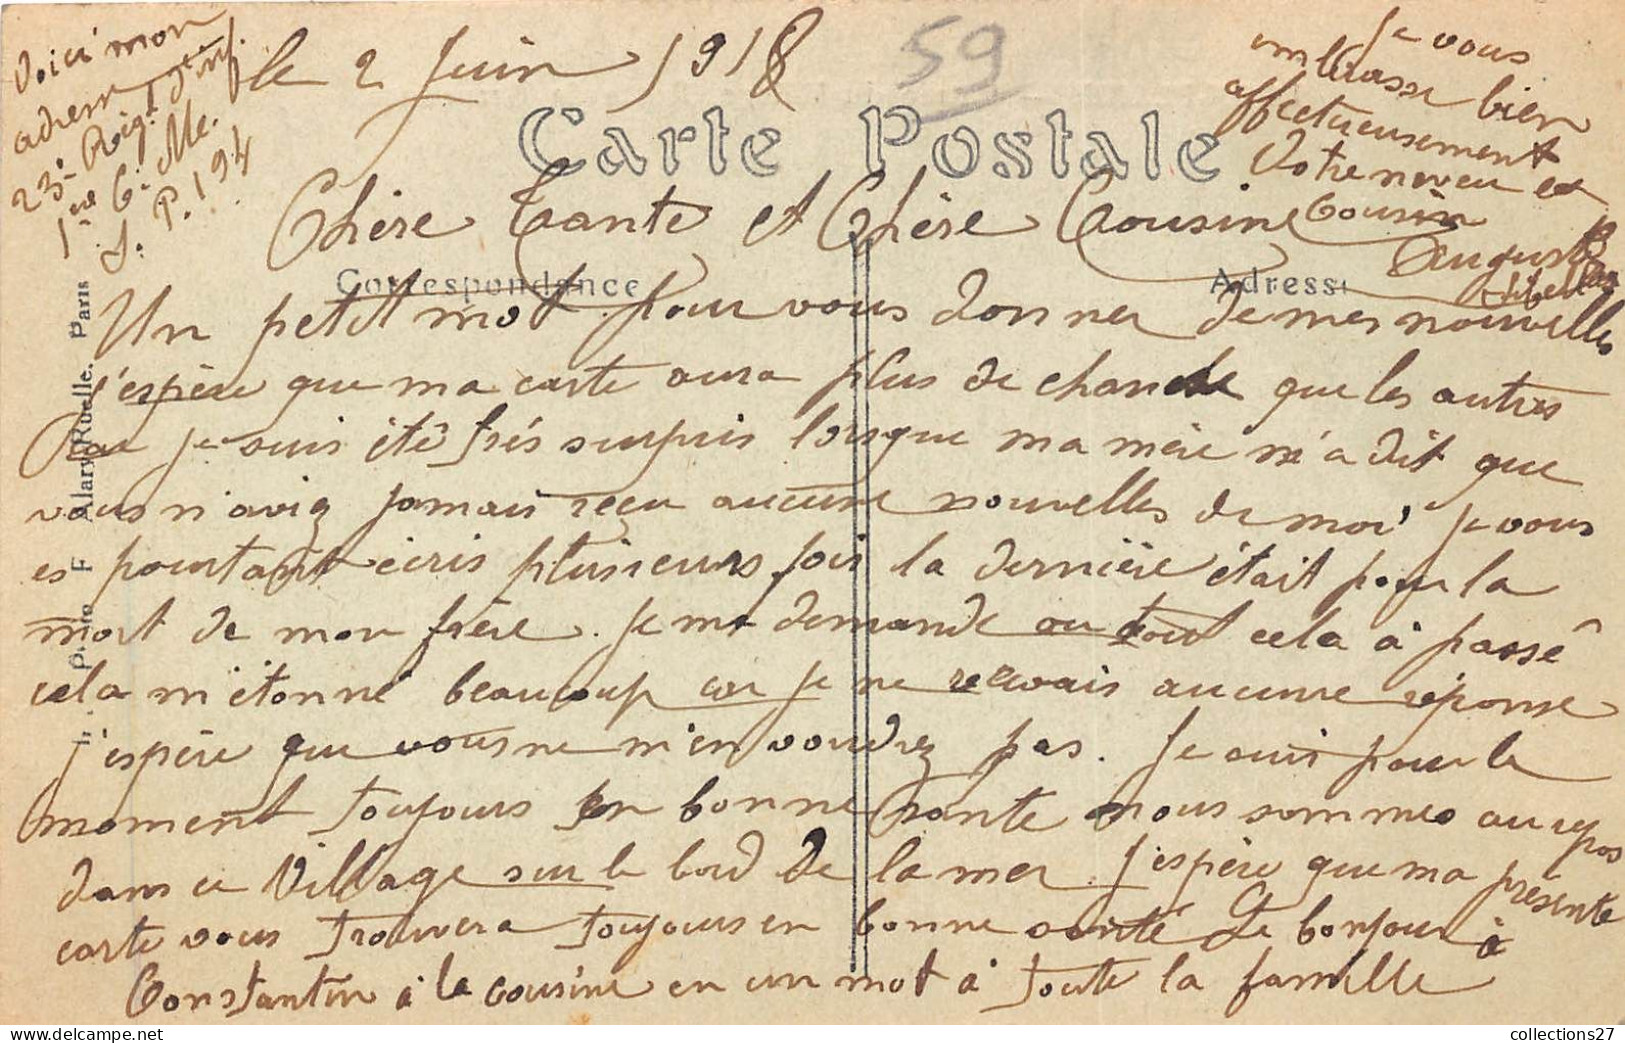 Voici mon
adresse
23e Reig.t d'inf.
1ère C.ie Me.
S. P. 194
le 2 Juin 1918
59
Carte Postale
Chère Tante et Chère Cousine
Correspondance
Adresse
Un petit mot pour vous donner de mes nouvelles
j'espère que ma carte aura plus de chance que les autres
Car je suis étê trés surpris lorsque ma mère m'a dit que
vous n'aviez jamais reçu aucune nouvelles de moi je vous
es pourtant écris plusieurs fois la dernière était pour la
mort de mon frère. Je me demande ou tout cela à passê
cela m'étonné beaucoup car je ne recevais aucune réponse
j'espère que vous ne m'en voudrez pas. Je suis pour le
moment toujours en bonne sante nous sommes au repos
dans ce Village sur le bord de la mer j'espère que ma présente
carte vous trouvera toujours en bonne santé Le bonjour à
Constantin à la cousine en un mot à toute la famille
Je vous
embrasse bien
affectueusement
Votre neveu et
Cousin
Auguste
F Alary-Ruelle. Paris
collections27